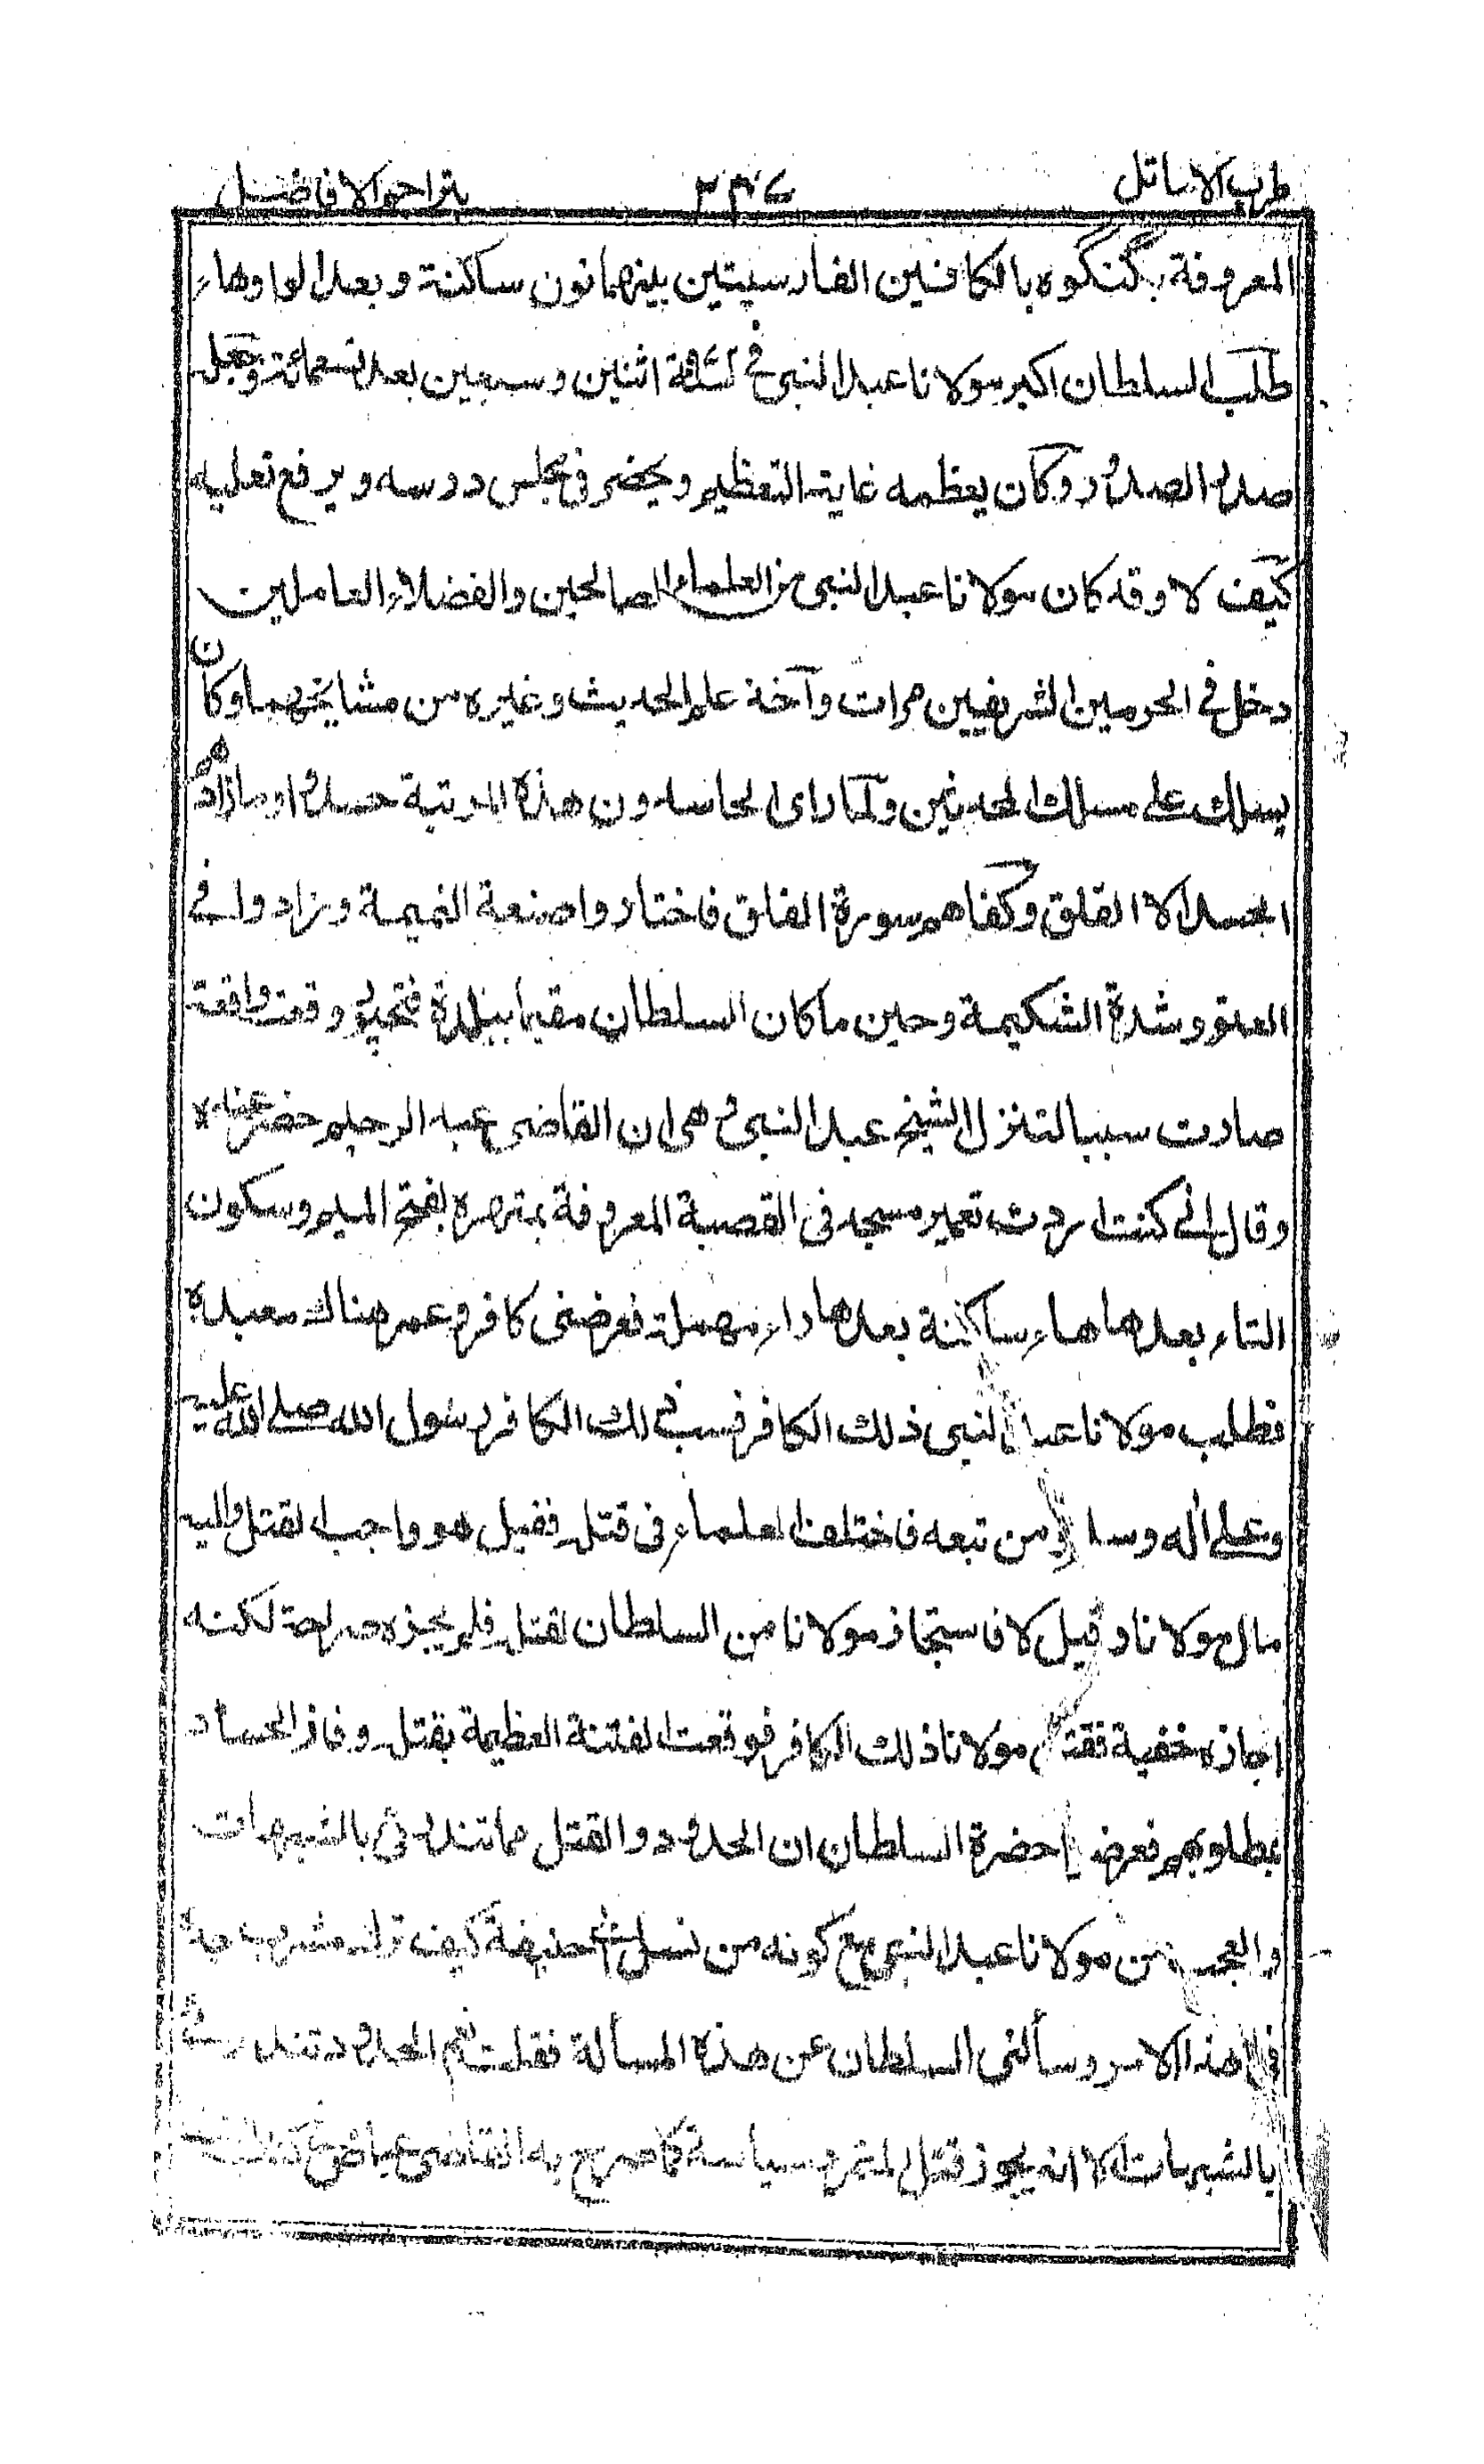 طرب الاماثل ٢٣٧ بتراجم الافاضل
المعروفة بگنگوه بالكافين الفارسيتين بينهما نون ساكنة وبعد الواو هاء
طلب السلطان اكبر مولانا عبد النبي في سنة اثنين وسبعين بعد تسعمائة وجعله
صدر الصدور وكان يعظمه غاية التعظيم ويحضر في مجلس درسه ويرفع نعليه
كيف لا وقد كان مولانا عبد النبي من العلماء الصالحين والفضلاء العاملين
دخل في الحرمين الشريفين مرات وآخذ علم الحديث وغيره من مشايخهما وكان
يسلك على مسلك المحدثين ولما راى الحاسدون هذه المرتبة حسدوا وما زادهم
الحسد الا القلق وكفاهم سورة الفلق فاختاروا صنعة النميمة وزادوا في
العتو وشدة الشكيمة وحين ما كان السلطان مقيما ببلدة فتحپور وقعت واقعة
صارت سببا لتنزل الشيخ عبد النبي وهي ان القاضي عبد الرحيم حضر عنده
وقال اني كنت اردت تعمير مسجد في القصبة المعروفة بمتهره بفتح الميم وسكون
التاء بعدها هاء ساكنة بعدها راء مهملة فعرضني كافر وعمر هناك معبده
فطلب مولانا عبد النبي ذلك الكافر فسب ذلك الكافر رسول الله صلى الله عليه
وعلى آله وسلم ومن تبعه فاختلف العلماء في قتله فقيل هو واجب القتل واليه
مال مولانا وقيل لا فاستجاز مولانا من السلطان لقتله فلم يجزه صراحة لكنه
اجازه خفية فقتل مولانا ذلك الكافر فوقعت الفتنة العظيمة بقتله وفاز الحساد
بمطلوبهم فعرضوا حضرة السلطان ان الحدود والقتل مما تندرئ بالشبهات
والعجب من مولانا عبد النبي مع كونه من نسل ابي حنيفة كيف ترك مشرب جده
في هذا الامر وسألني السلطان عن هذه المسألة فقلت نعم الحدود تندرئ
بالشبهات الا انه يجوز قتل المتمرد سياسة كما صرح به القاضي عياض